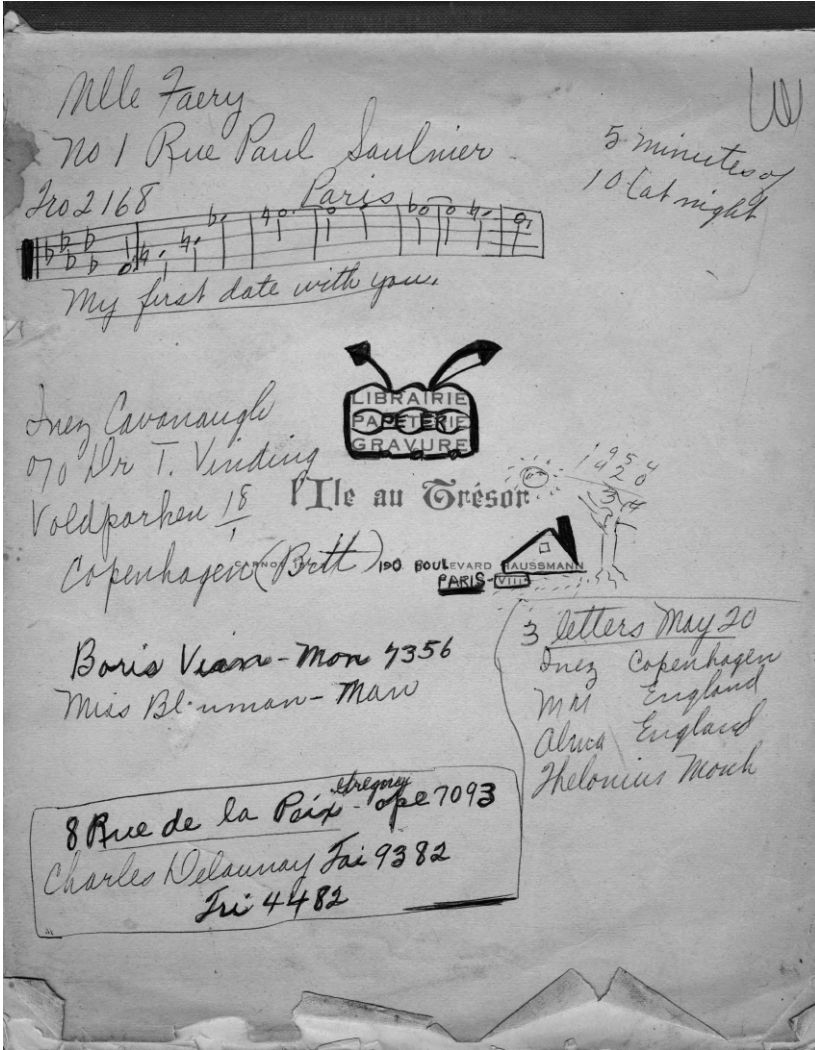 Mlle Faery
No 1 Rue Paul Saulnier
Tro 2168 Paris
5 minutes of
10 (at night
My first date with you.
LIBRAIRIE
PAPETERIE
GRAVURE
l'Ile au Trésor
190 BOULEVARD HAUSSMANN
PARIS-VIII
1954
1920
34
Inez Cavanaugh
c/o Dr T. Vinding
Voldparken 18/1
Copenhagen (Brtt)
Boris Vian - Mon 7356
Miss - Mon
3 letters May 20
Inez Copenhagen
England
England
Thelonius Monk
Gregory
8 Rue de la Paix - ope 7093
Charles Delaunay Tai 9382
Tri 4482